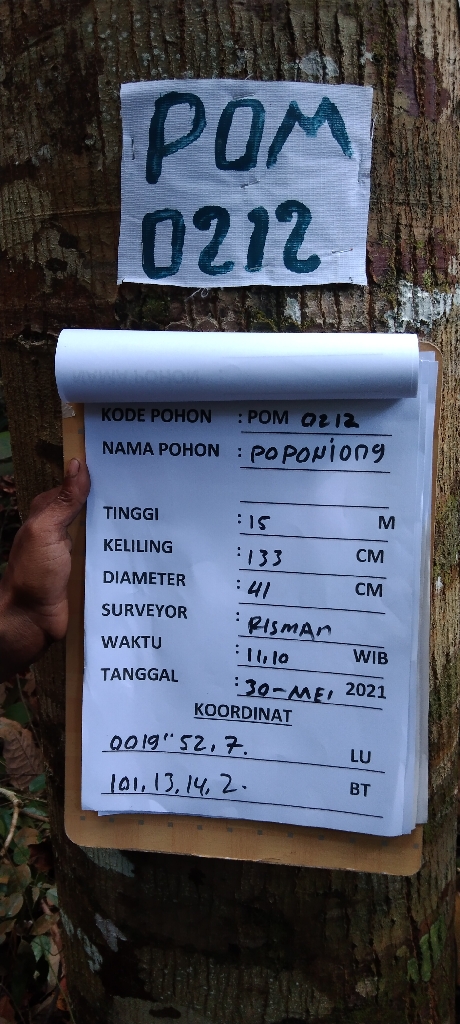 POM
0212
KODE POHON : POM 0212
NAMA POHON : POPONiong
TINGGI : 15 M
KELILING : 133 CM
DIAMETER : 41 CM
SURVEYOR : RISMAn
WAKTU : 11,10 WIB
TANGGAL : 30-MEI 2021
KOORDINAT
0019" 52, 7. LU
101, 13, 14, 2. BT